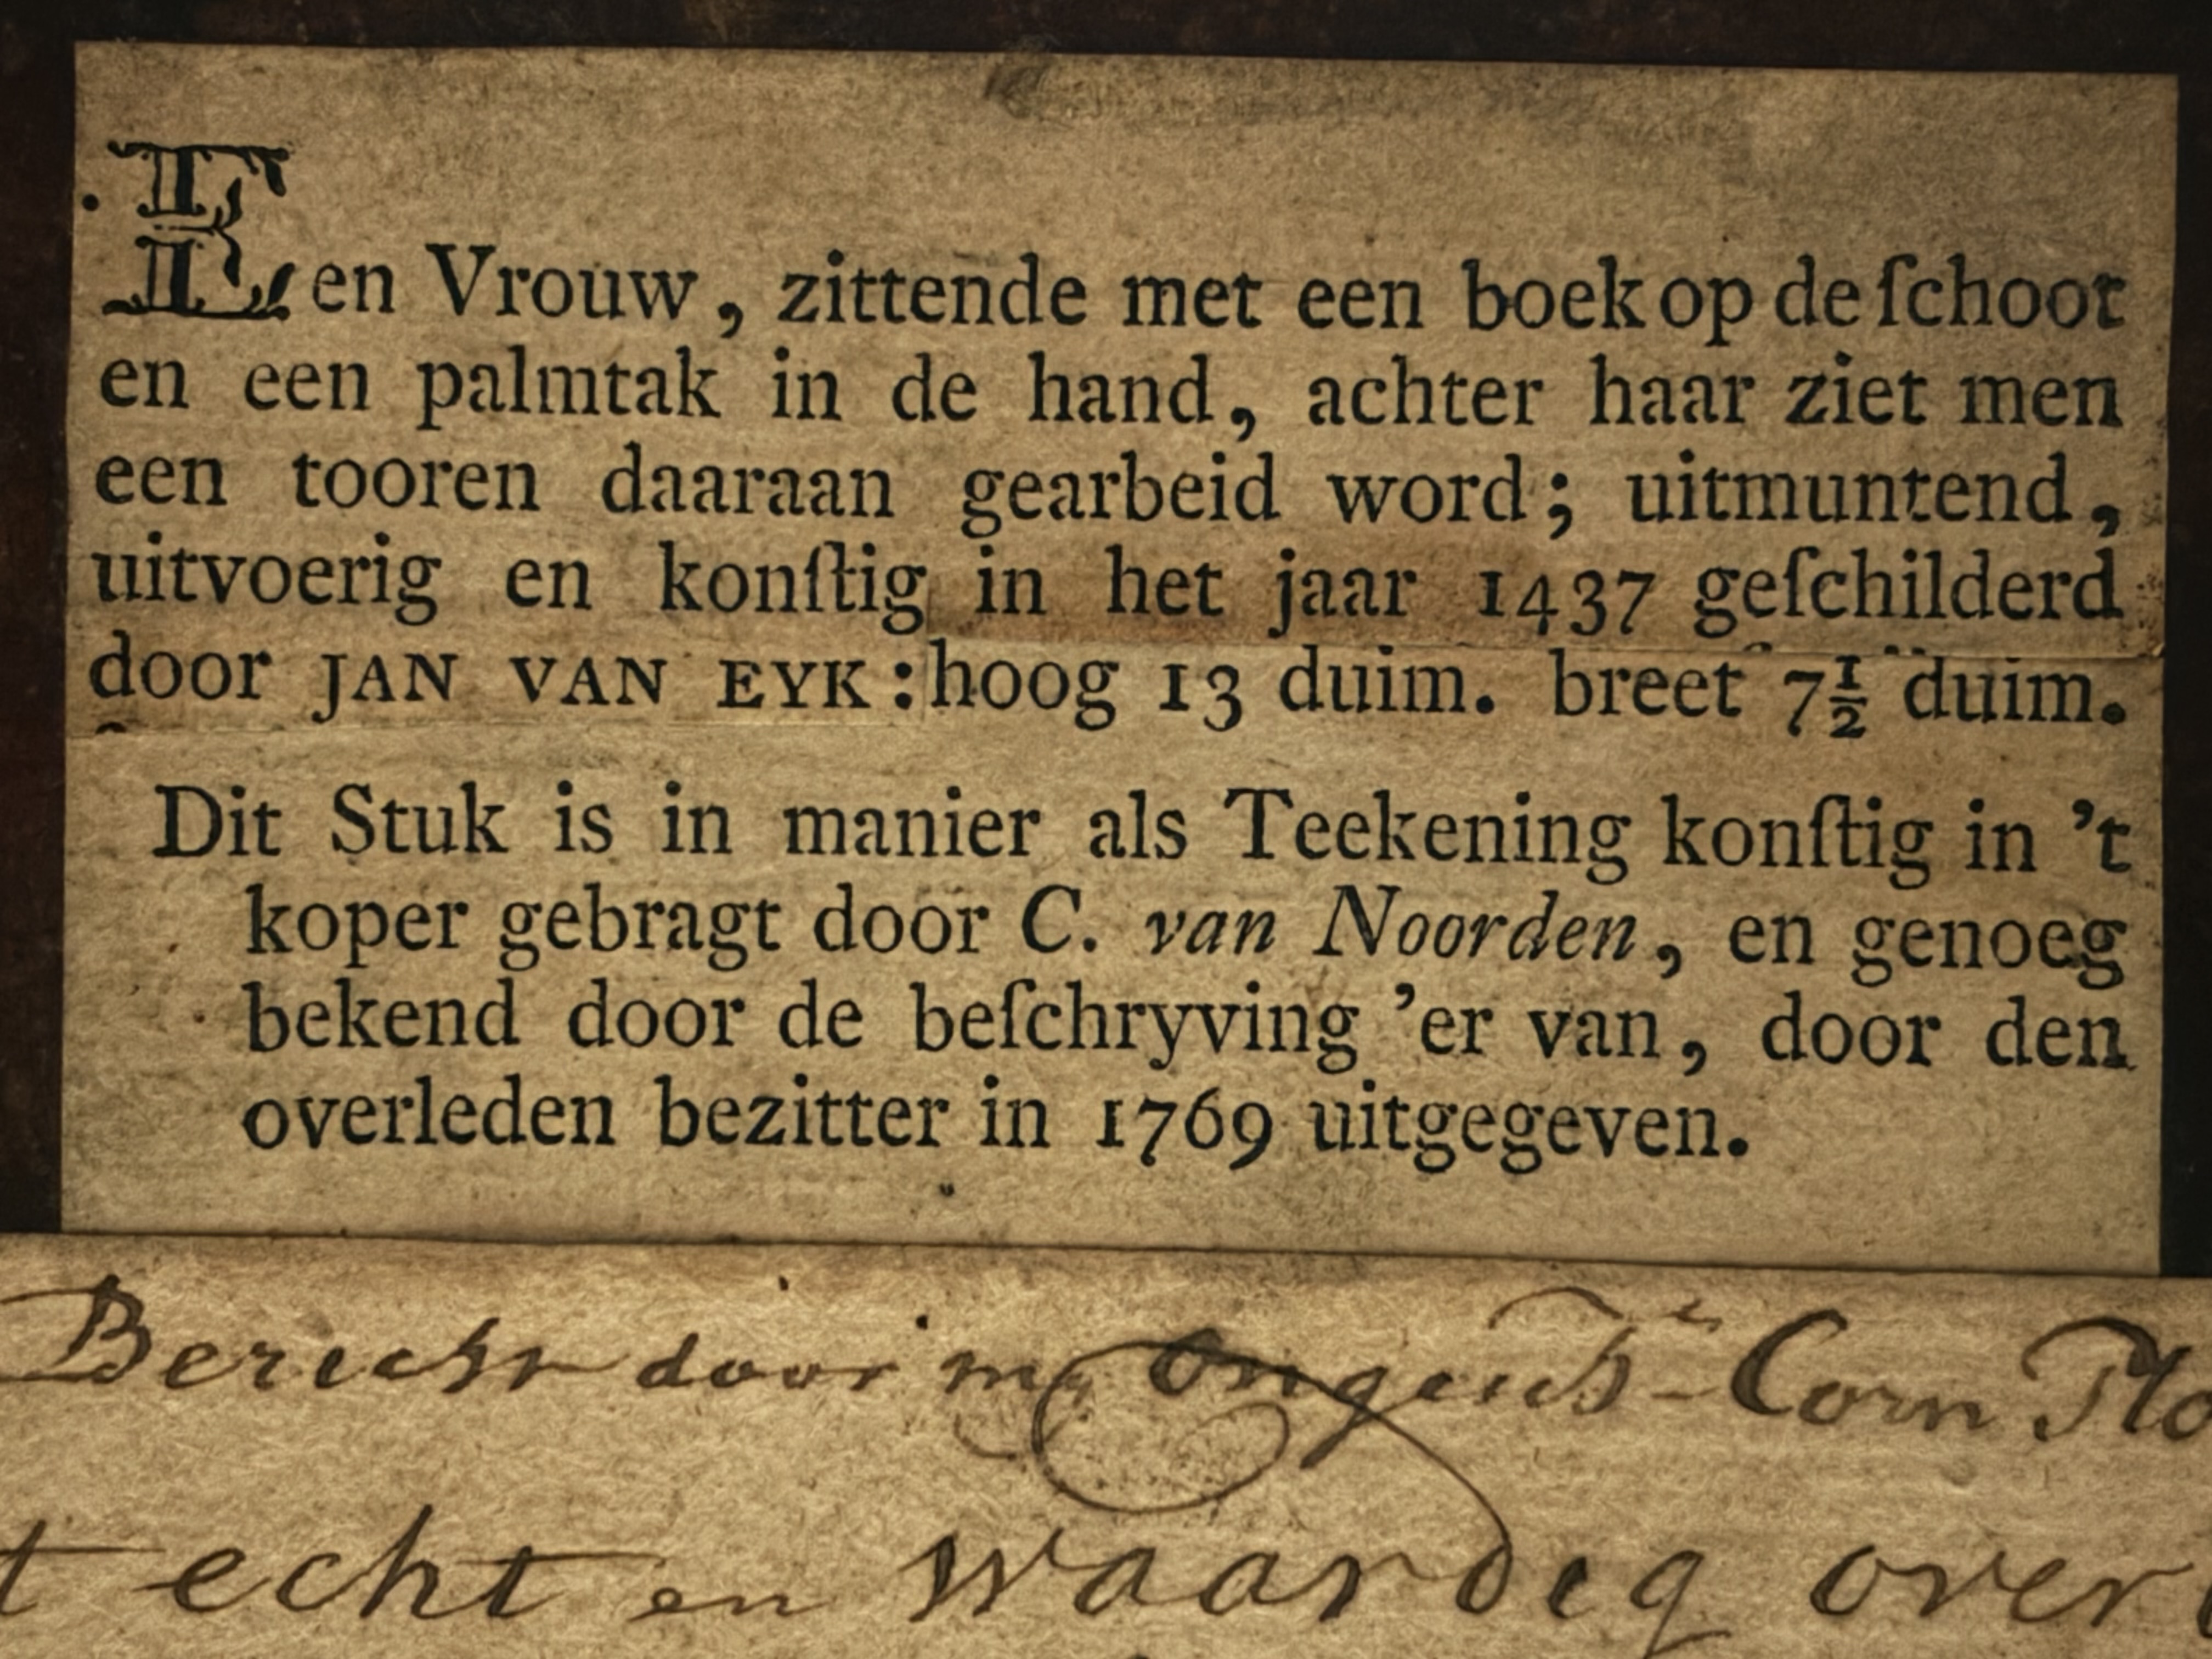 Een Vrouw, zittende met een boek op de ſchoot
en een palmtak in de hand, achter haar ziet men
een tooren daaraan gearbeid word; uitmuntend,
uitvoerig en konſtig in het jaar 1437 geſchilderd
door JAN VAN EYK: hoog 13 duim. breet 7½ duim.
Dit Stuk is in manier als Teekening konſtig in 't
koper gebragt door C. van Noorden, en genoeg
bekend door de beſchryving 'er van, door den
overleden bezitter in 1769 uitgegeven.
Bericht door my Corn
echt en waardig over